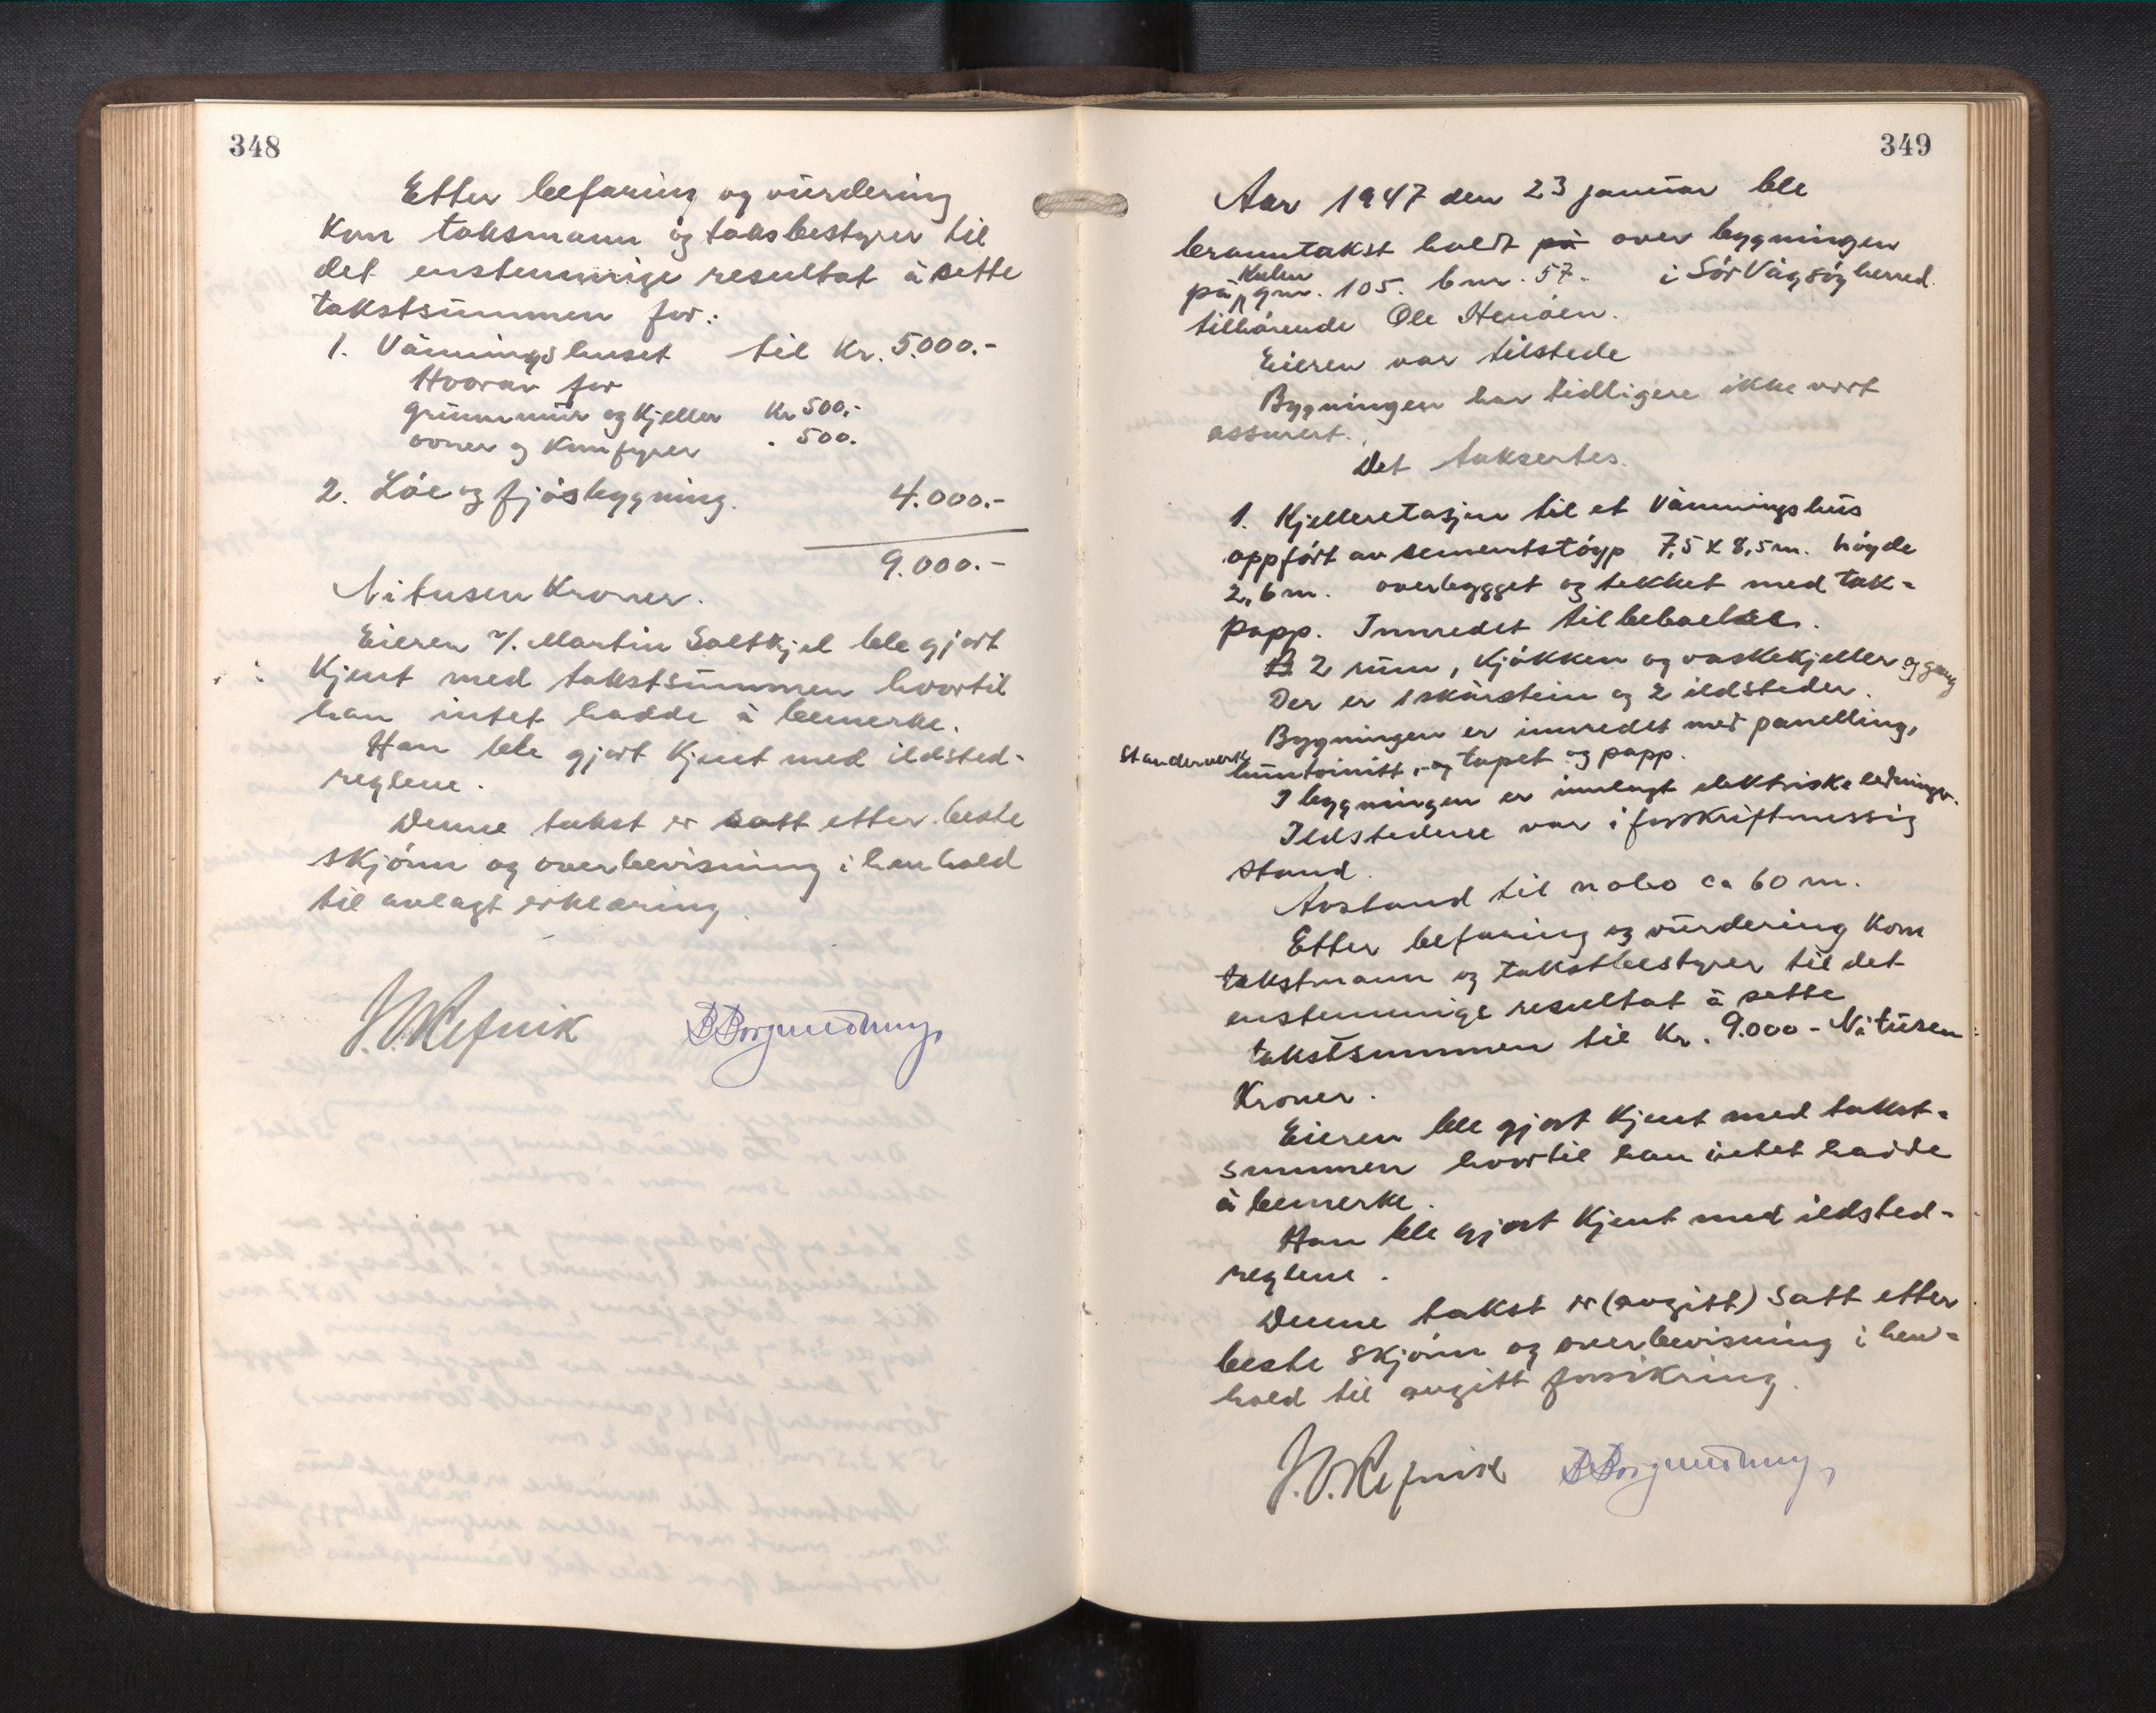 348
Etter befaring og vurdering
kom taksmann og taksbestyrer til
det enstemmige resultat å sette
takstsummen for:
1. Våningshuset til kr. 5.000.-
Hvorav for
grunnmur og kjeller kr 500.-
ovner og komfyrer . 500.
2. Löe og fjösbygning. 4.000.-
9.000.-
Nitusen kroner.
Eieren v/. Martin Saltkjel ble gjort
kjent med takstsummen hvortil
han intet hadde å bemerke.
Han ble gjort kjent med ildsted-
reglene.
Denne takst er satt etter beste
skjönn og overbevisning i henhold
til avlagt erklæring.
J.O. Refvik
349
Aar 1947 den 23 januar ble
branntakst holdt på over bygningen
på Kulen gnr. 105. bnr. 57. i Sör Vågsöy herred.
tilhörende Ole Henöen.
Eieren var tilstede
Bygningen har tidligere ikke vært
assurert.
Det taksertes.
1. Kjelleretasjen til et våningshus
oppfört av sementstöyp 7,5 x 8,5 m. höyde
2,6 m. overbygget og tekket med tak-
papp. Innredet til beboelse.
2 rum, kjökken og vaskekjeller og gang
Der er 1 skorstein og 2 ildsteder.
Bygningen er innredet med panelling,
standerverk
huntonitt, og tapet og papp.
I bygningen er innlagt elektriske ledninger.
Ildstedene var i forskriftmessig
stand.
Avstand til nabo ca 60 m.
Etter befaring og vurdering kom
takstmann og takstbestyrer til det
enstemmige resultat å sette
takstsummen til kr. 9.000 - Nitusen
kroner.
Eieren ble gjort kjent med takst-
summen hvortil han intet hadde
å bemerke.
Han ble gjort kjent med ildsted-
reglene.
Denne takst er (avgitt) satt etter
beste skjönn og overbevisning i hen-
hold til avgitt forsikring.
J.O. Refvik